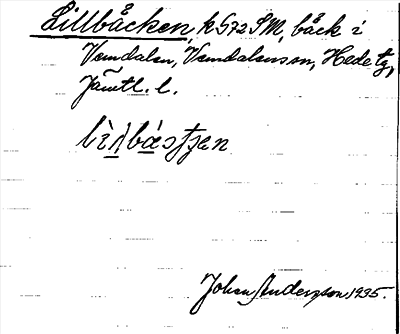 Lillbåcken, k 572 SM, båck i
Vemdalen, Vemdalens sn, Hede tg,
Jämtl. l.
Johan Anderzson 1935.